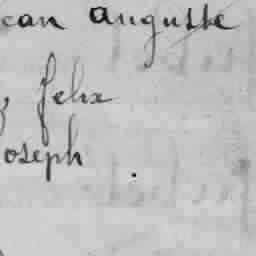 ean auguste
, felix
oseph